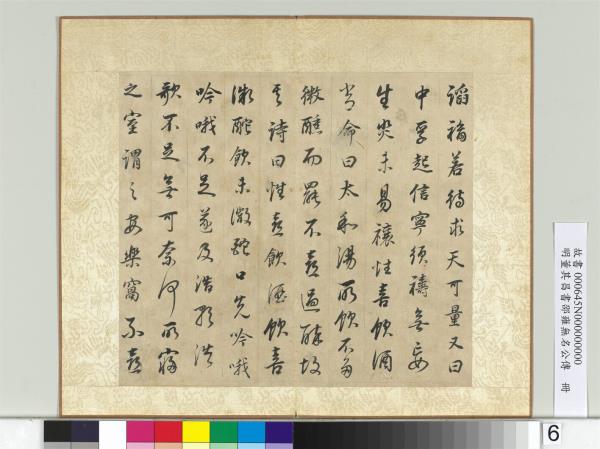 諂福若待求天可量又曰
中孚起信寧須禱無妄
生災未易禳性喜飲酒
嘗命曰太和湯所飲不多
微醺而罷不喜過醉故
其詩曰性喜飲酒飲喜
微酡飲未微酡口先吟哦
吟哦不足遂及浩歌浩
歌不足無可奈何所寢
之室謂之安樂窩不喜
故書000645N000000000
明董其昌書邵雍無名公傳 冊
6